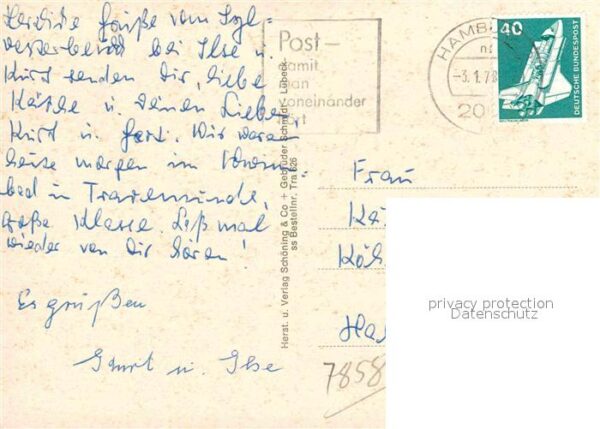 Herzliche Grüße vom
bei Ilse u.
Kurt senden Dir, liebe
Käthe u. Deinen Lieben
Kurt u. Wir waren
heute morgen im
bad in Travemünde,
große Klasse. Laß mal
wieder von Dir hören!
Es grüßen
u. Ilse
Post –
damit
man
voneinander
hört
HAMB
-3.1.78
20
40
DEUTSCHE BUNDESPOST
Herst. u. Verlag Schöning & Co + Gebrüder Schmidt, Lübeck
ss Bestellnr. Tra 626
Frau
Kä
Köh
Ha
7858
privacy protection
Datenschutz